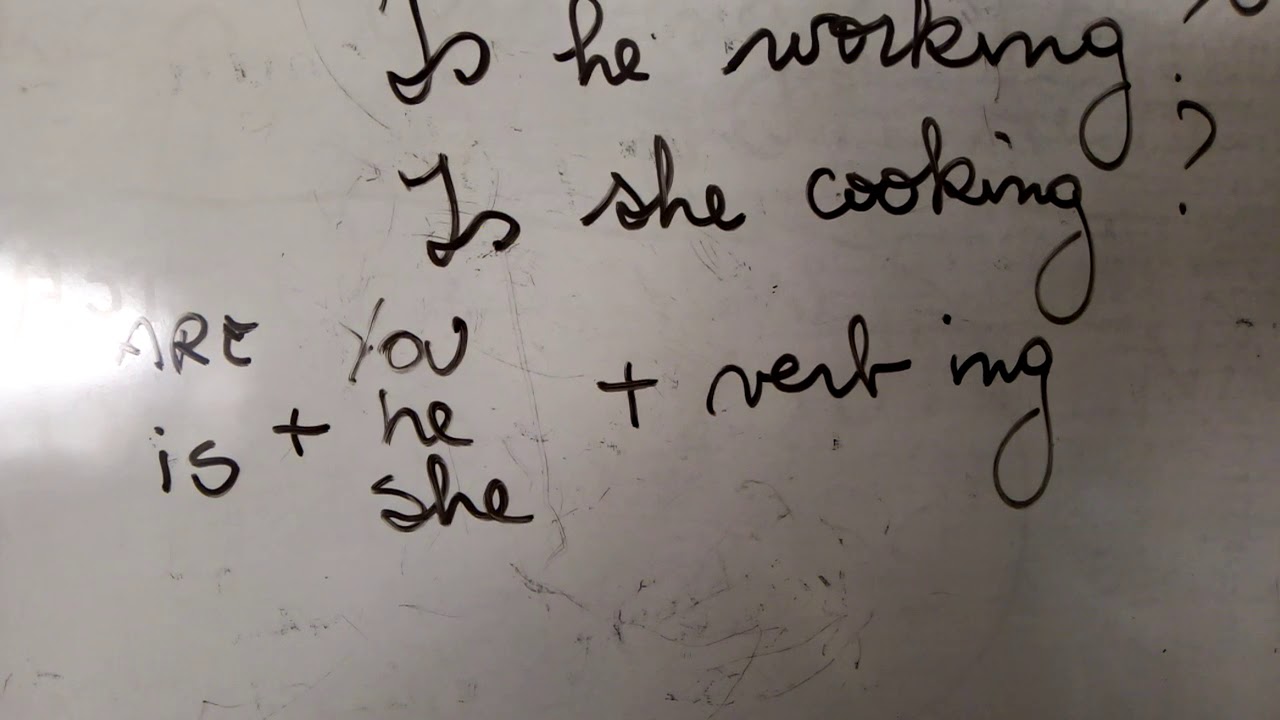 Is he working?
Is she cooking?
ARE You
is + he + verb ing
she